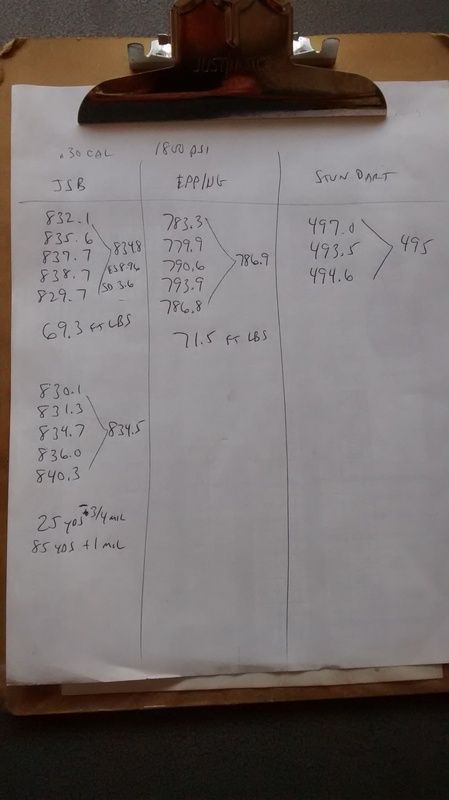 .30 CAL
1800 PSI
JSB
832.1
835.6
837.7
838.7
829.7
834.8
ES 8.96
SD 3.6
69.3 FT LBS
830.1
831.3
834.7
836.0
840.3
834.5
25 YDS - 3/4 MIL
85 YDS +1 MIL
EPPING
783.3
779.9
790.6
793.9
786.8
786.9
71.5 FT LBS
STUN DART
497.0
493.5
494.6
495